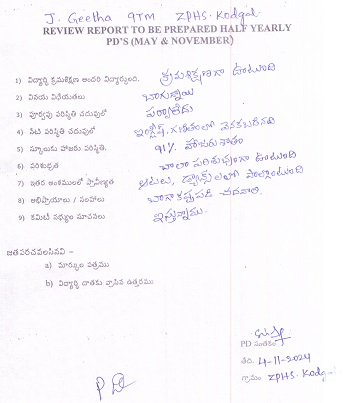 J. Geetha 9TM ZPHS. Kodgal
REVIEW REPORT TO BE PREPARED HALF YEARLY
PD'S (MAY & NOVEMBER)
1) విద్యార్థి క్రమశిక్షణ అందరి విద్యార్థులంది. క్రమశిక్షణగా ఉంటుంది
2) వినయ విధేయతలు బాగున్నాయి
3) పూర్వపు పరిస్థితి చదువులో పర్వాలేదు
4) నేటి పరిస్థితి చదువులో ఇంగ్లీష్, గణితంలో వెనకబడినది
5) స్కూలుకు హాజరు పరిస్థితి. 91% హాజరు శాతం
6) పరిశుభ్రత చాలా పరిశుభ్రంగా ఉంటుంది
7) ఇతర అంశములలో ప్రావీణ్యత ఆటలు, డ్యాన్స్ లలో పాల్గొంటుంది
8) అభిప్రాయాలు / సలహాలు బాగా కష్టపడి చదవాలి.
9) కమిటీ సభ్యుల సూచనలు ఇస్తున్నాము.
జతపరచవలసినవి :-
a) మార్కుల పత్రము
b) విద్యార్థి దాతకు వ్రాసిన ఉత్తరము
PD సంతకం
తేది. 4-11-2024
గ్రామం ZPHS. Kodgal
PD